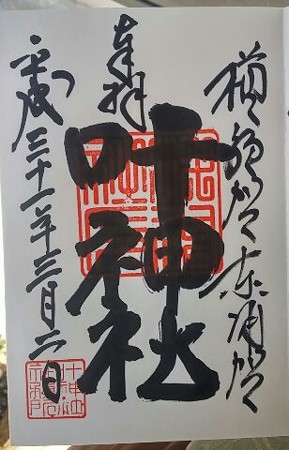 横須賀東浦賀
奉拝
叶神社
平成三十一年三月二日